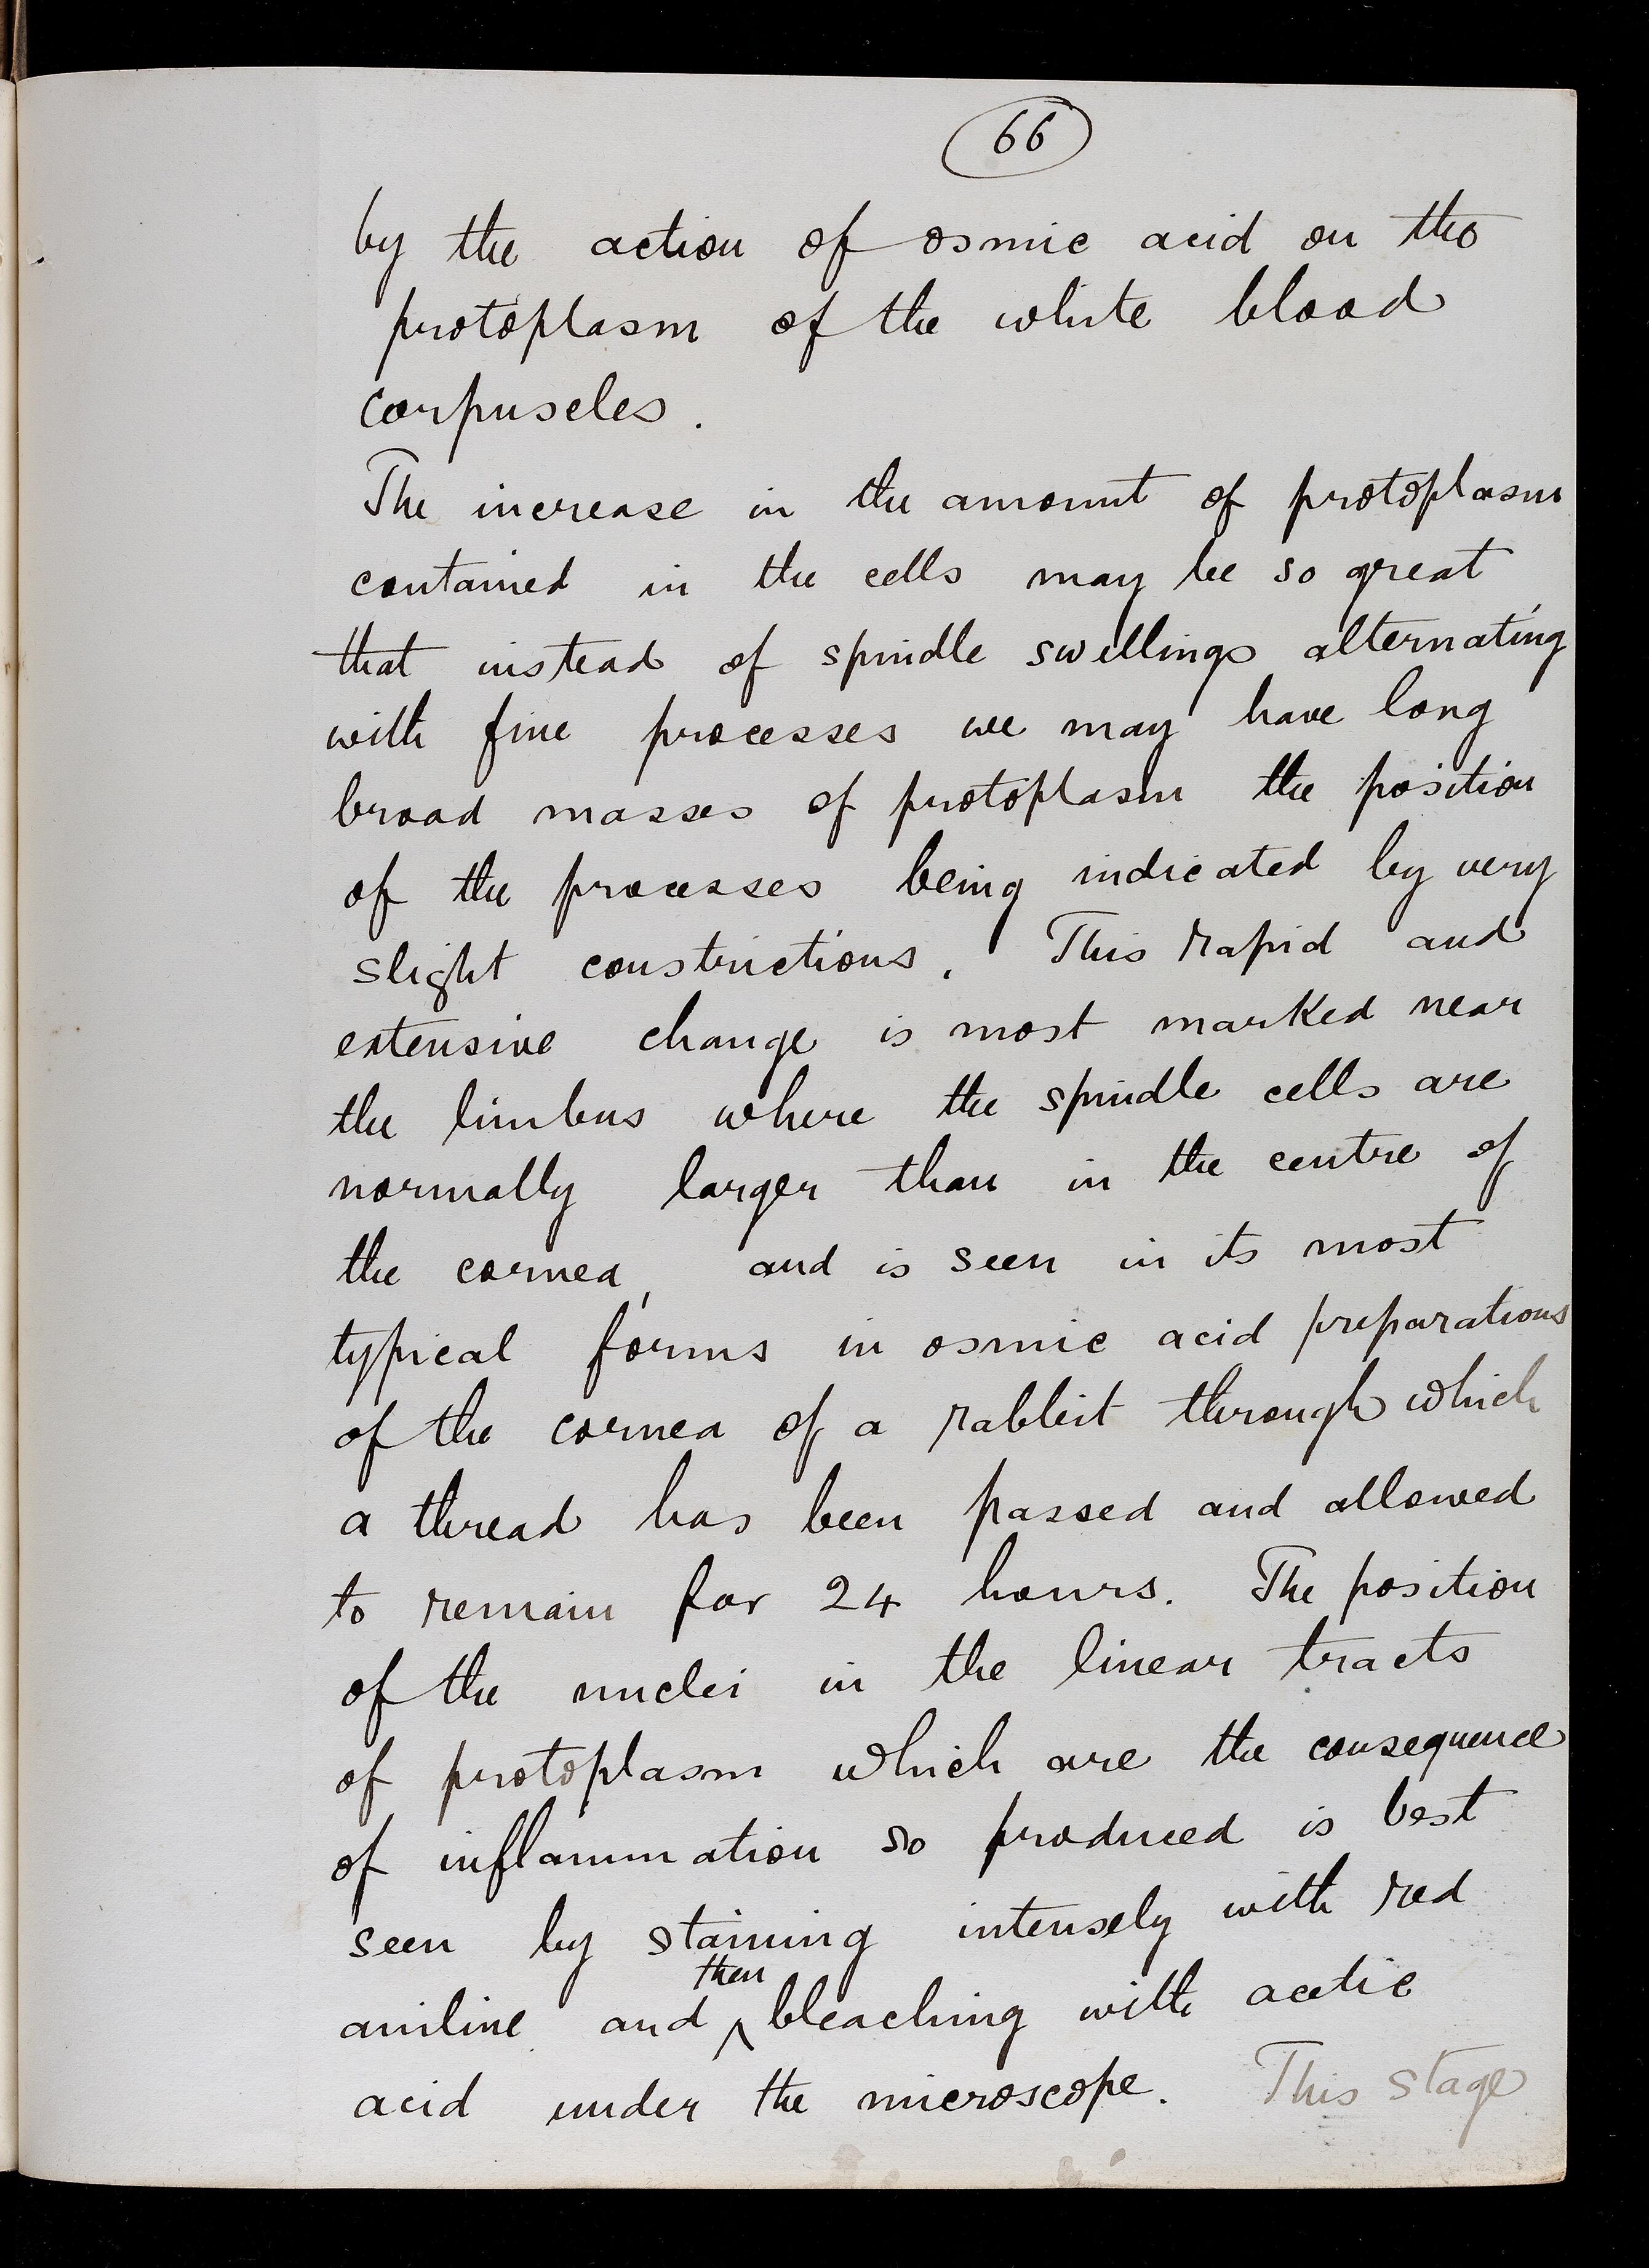 66
by the action of osmic acid on the
protoplasm of the white blood
corpuscles.
The increase in the amount of protoplasm
contained in the cells may be so great
that instead of spindle swellings alternating
with fine processes we may have long
broad masses of protoplasm the position
of the processes being indicated by very
slight constrictions. This rapid and
extensive change is most marked near
the limbus where the spindle cells are
normally larger than in the centre of
the cornea, and is seen in its most
typical forms in osmic acid preparations
of the cornea of a rabbit through which
a thread has been passed and allowed
to remain for 24 hours. The position
of the nuclei in the linear tracts
of protoplasm which are the consequence
of inflammation so produced is best
seen by staining intensely with red
aniline and then bleaching with acetic
acid under the microscope. This stage